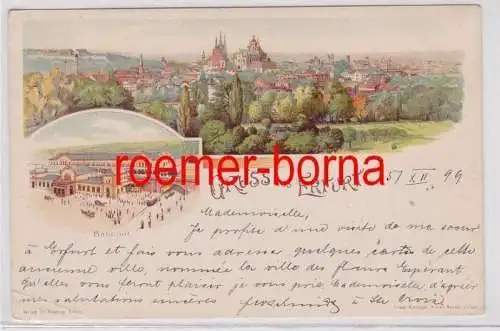 roemer-borna
GRUSS ERFURT 5/ XII 99
Bahnhof
Mademoiselle,
Je profite d'une visite de ma soeur
à Erfurt et fais vous adresser quelques cartes de cette
ancienne ville, nommée la ville des fleurs Espérant
qu'elles vous feront plaisir je vous prie Mademoiselle d'agréer
mes salutations sincères à Ste Croix